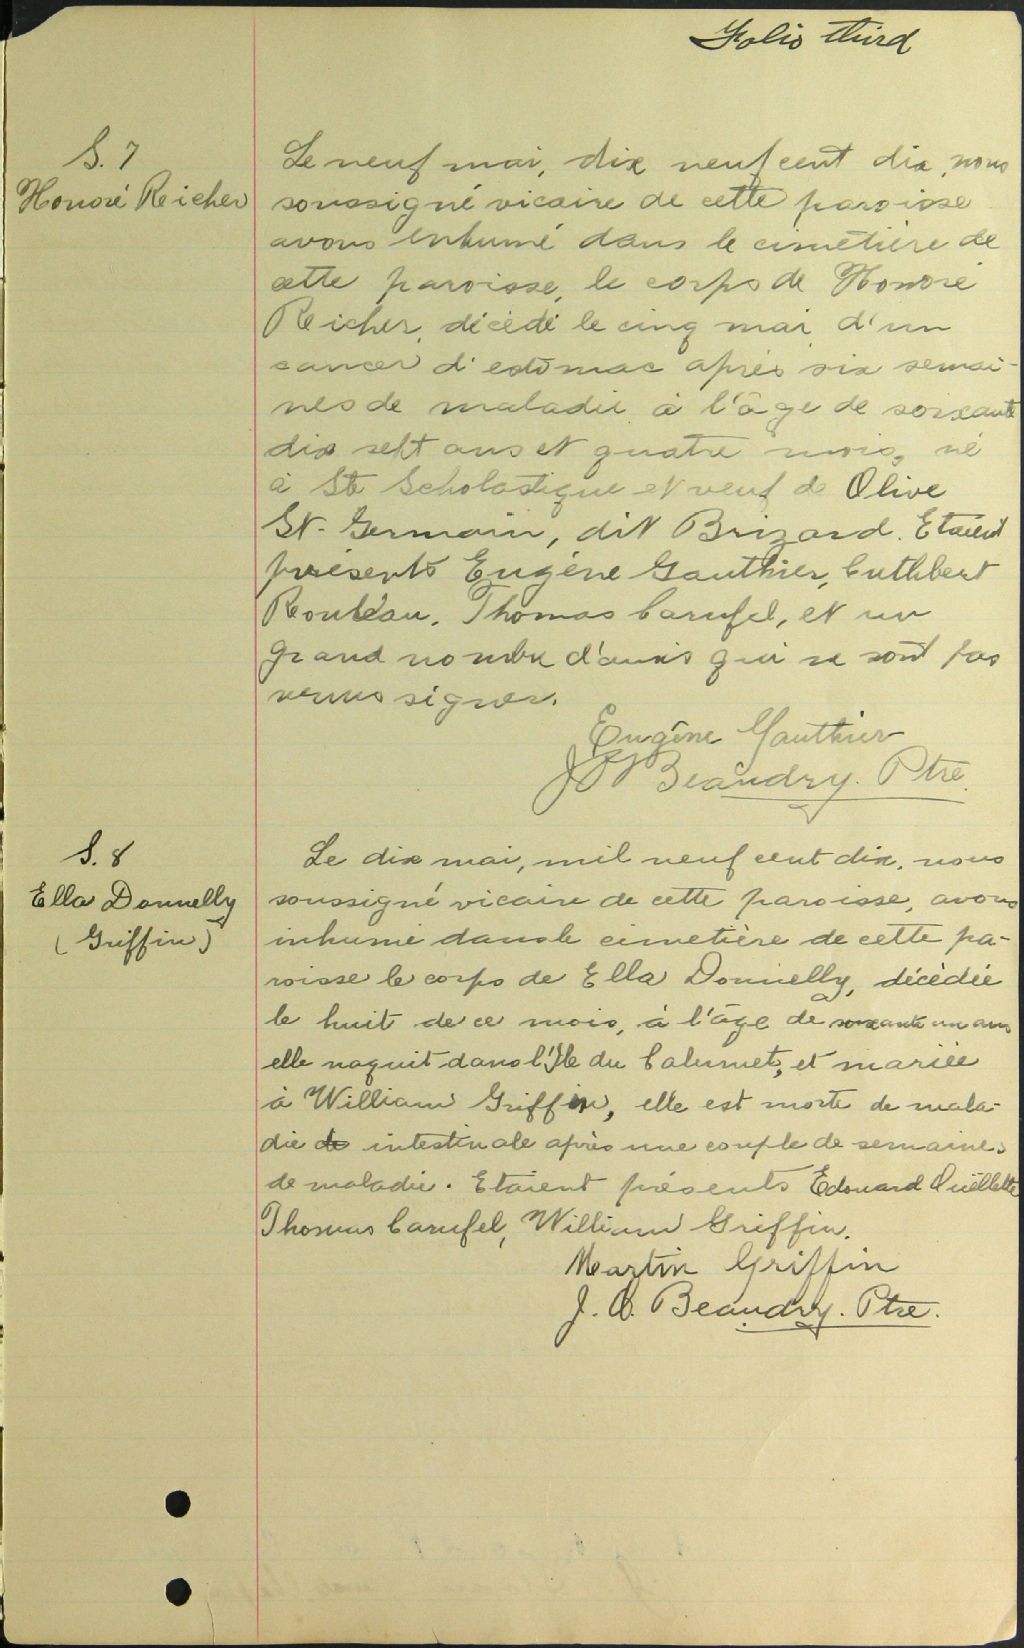 Folio third
S. 7
Honoré Reicher
Le neuf mai, dix neuf cent dix, nous
soussigné vicaire de cette paroisse
avons inhumé dans le cimetière de
cette paroisse, le corps de Honoré
Reicher, décédé le cinq mai d'un
cancer d'estomac après six semai-
nes de maladie à l'âge de soixante
dix sept ans et quatre mois, né
à Ste Scholastique et veuf de Olive
St. Germain, dit Brizard. Etaient
présents Eugène Gauthier, Cuthbert
Rouleau, Thomas Carufel, et un
grand nombre d'amis qui ne sont pas
venus signer.
Eugène Gauthier
J O Beaudry. Ptre.
S. 8
Ella Donnelly
(Griffin)
Le dix mai, mil neuf cent dix, nous
soussigné vicaire de cette paroisse, avons
inhumé dans le cimetière de cette pa-
roisse le corps de Ella Donnelly, décédée
le huit de ce mois, à l'âge de soixante un ans
elle naquit dans l'Ile du Calumet, et mariée
à William Griffin, elle est morte de mala-
die de intestinale après une couple de semaines
de maladie. Etaient présents Edouard Ouëllette
Thomas Carufel, William Griffin.
Martin Griffin
J. O. Beaudry. Ptre.